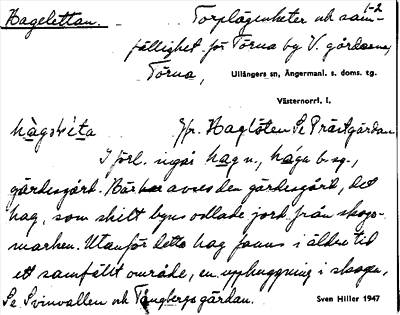 Hagelettan. Torplägenheter och sam- 1-2
fällighet för Törna by V. gårdarna,
Törna, Ullångers sn, Ångermanl. s. doms. tg.
Västernorrl. l.
Jfr. Haglöten Se Prästgården
I förl. ingår hag n., hága b. sg.,
gärdesgård. Här avses den gärdesgård, det
hag, som skilt byns odlade jord från skogs-
marken. Utanför detta hag fanns i äldre tid
ett samfällt område, en upphuggning i skogen,
Se Svinvallen och Tångbergsgårdan.
Sven Hiller 1947